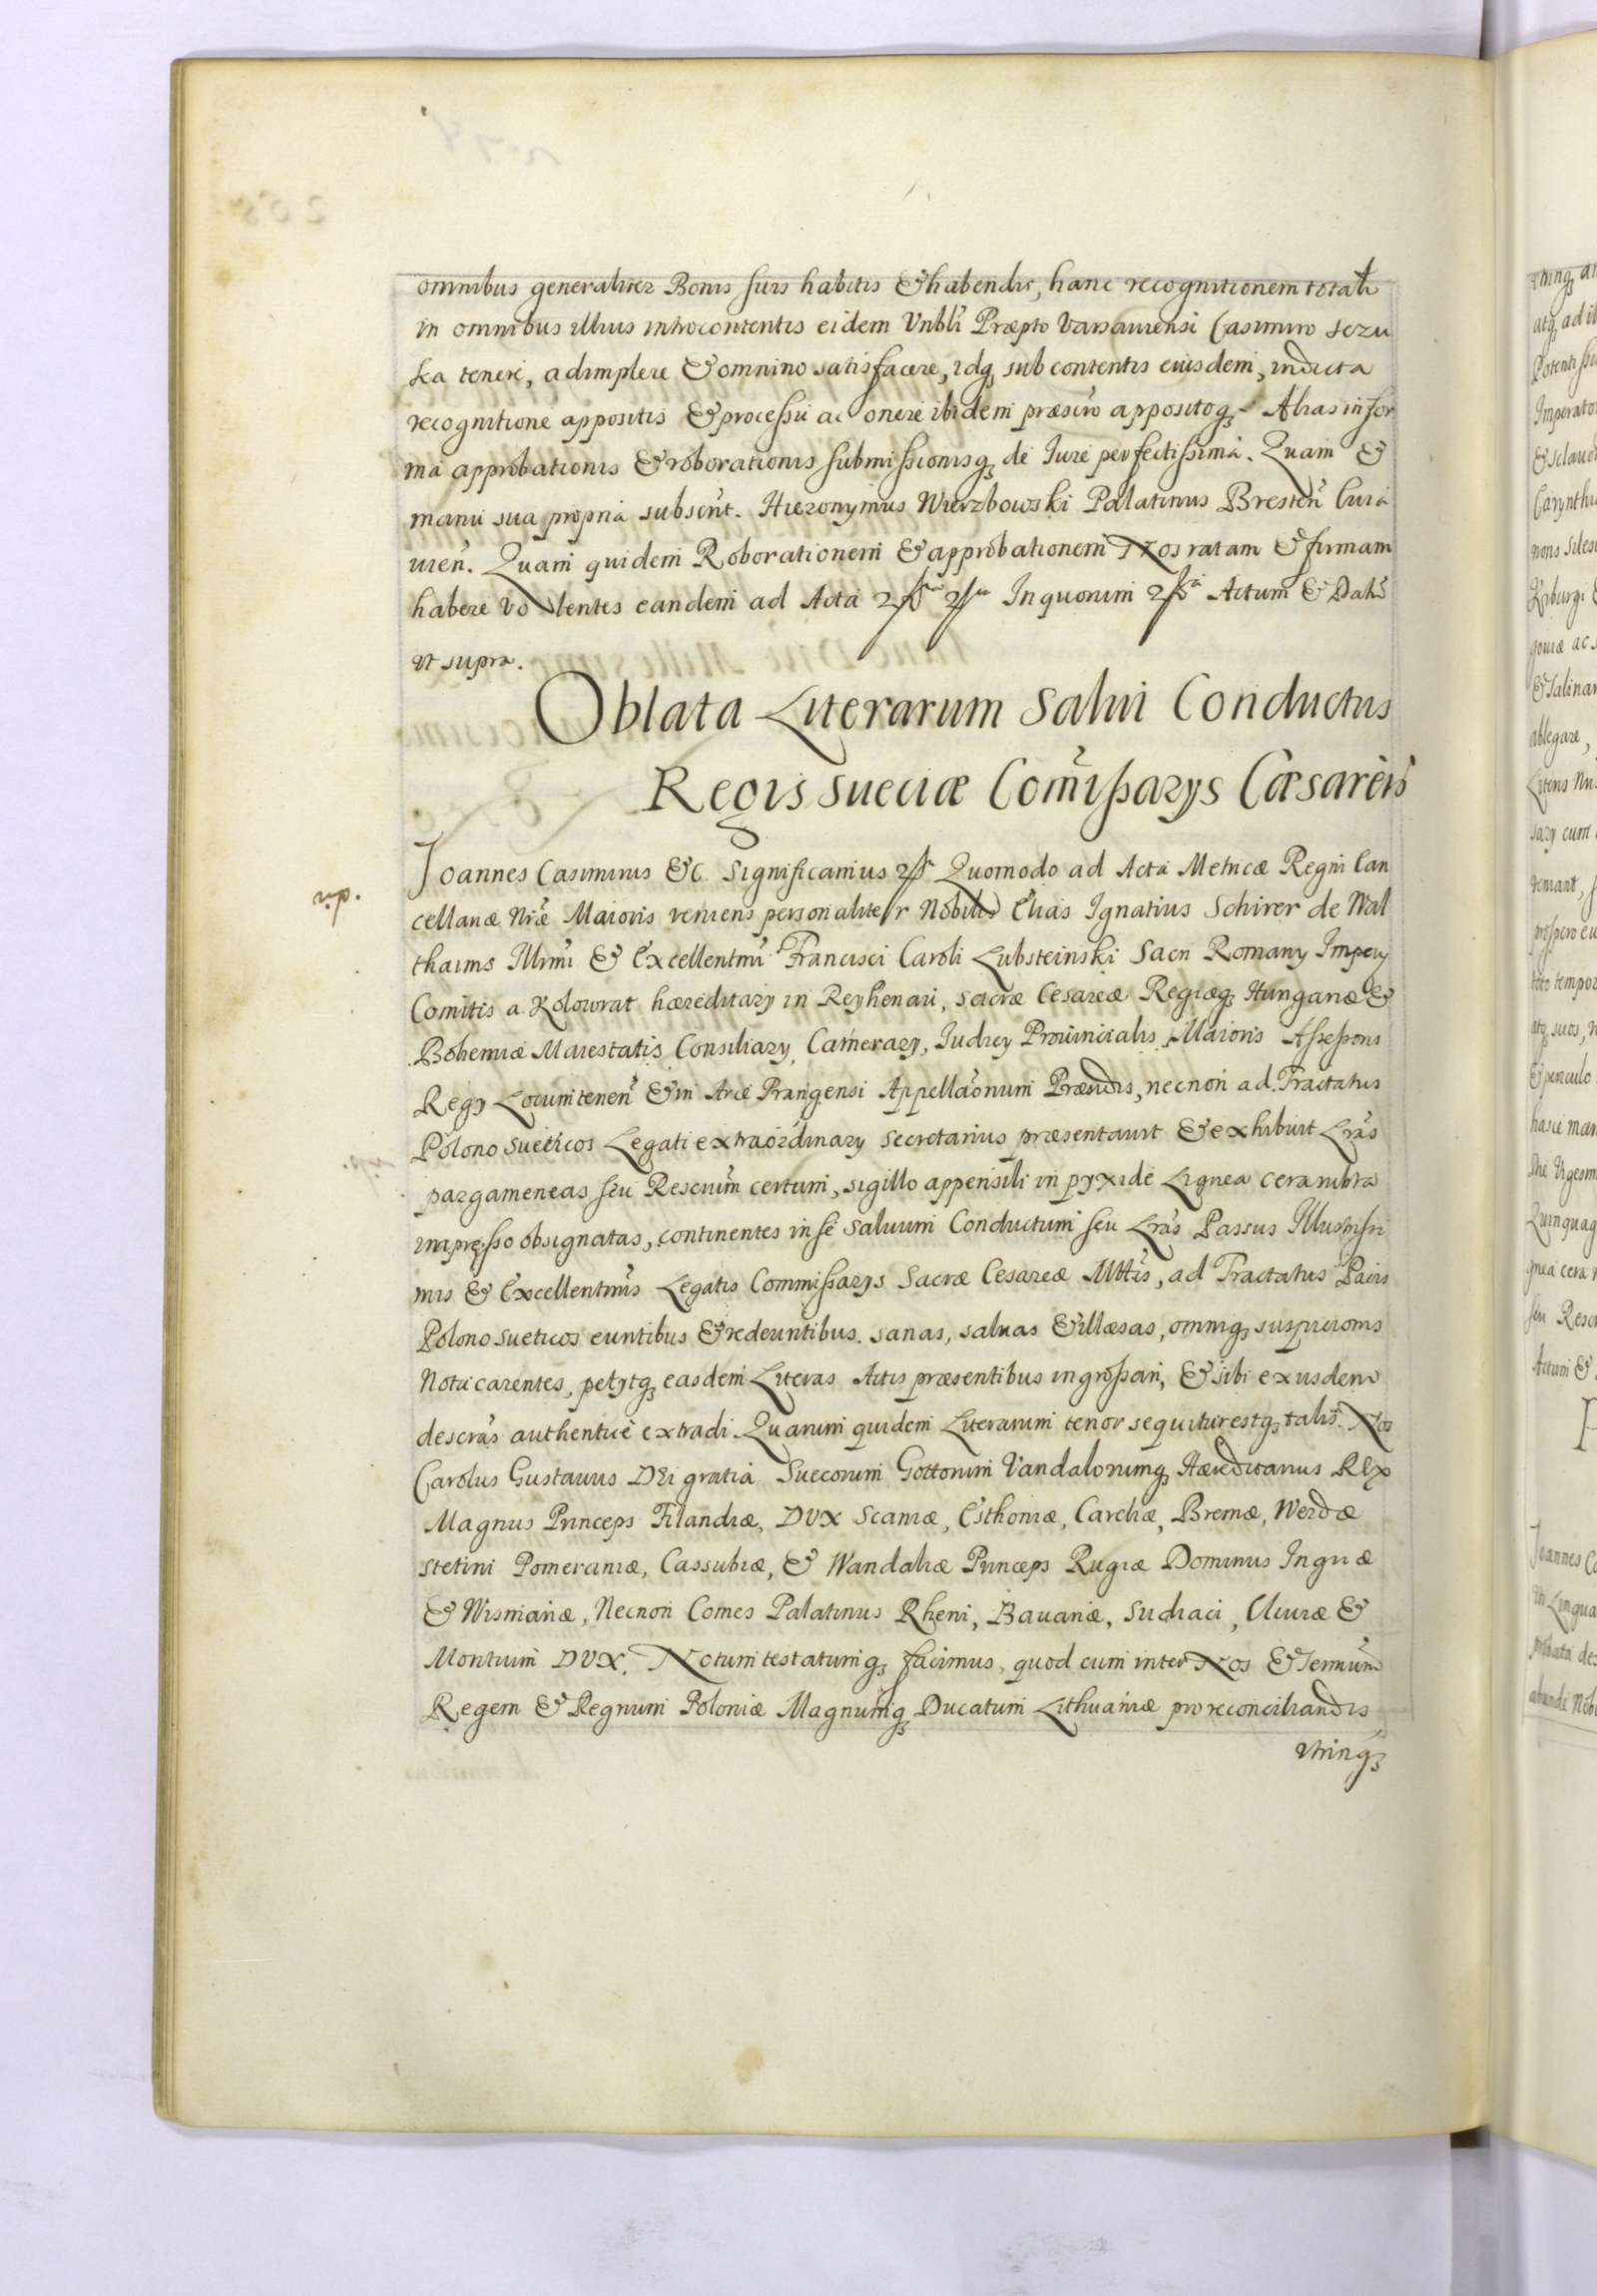 omnibus generaliter Bonis suis habitis & habendis, hanc recognitionem totali
in omnibus illius introcontentis eidem Vnbli Præpto Varsauiensi Casimiro Sczu
ka teneri, adimplere & omnino satisfacere, idq sub contentis eiusdem, in dicta
recognitione appositis & processu ac onere ibidem præscivo appositoq. Alias in for
ma approbationis & roborationis submissionisq de Iure perfectissima. Quam &
manu sua propria subscnt. Hieronymus Wierzbowski Palatinus Bresten Cuia
uien. Quam quidem Roborationem & approbationem Nos ratam & firmam
habere volentes eandem ad Acta In quorum Actum & Datu
vt supra.
Oblata Literarum Salui Conductus
Regis Sueciæ Comissarys Cæsareis
n.p.
Joannes Casimirus &c. Significamus Quomodo ad Acta Metricæ Regni Can
cellariæ Nræ Maioris veniens personaliter Nobilis Elias Ignatius Schirer de Wal
thaims Illrmi & Excellentmi Francisci Caroli Lubsteinski Sacri Romany Impery
Comitis a Kolowrat hæreditary in Reyhenau, sacræ Cesareæ Regiæq Hungariæ &
Bohemiæ Maiestatis Consiliary, Camerary, Iudicy Prouincialis Maioris Assessoris
Regy Locumtenen & in Arce Prangensi Appellaonum Præsidis, necnon ad Tractatus
Polono Sueticos Legati extraordinary Secretarius præsentauit & exhibuit Lras
pargameneas seu Rescrium certum, sigillo appensili in pyxide Lignea cera rubra
impresso obsignatas, continentes in se Saluum Conductum seu Lras Passus Illustrissi
mis & Excellentmis Legatis Commissarys Sacræ Cesareæ Mttis, ad Tractatus Pacis
Polono Sueticos euntibus & redeuntibus. sanas, saluas & illæsas, omniq suspicionis
Nota carentes, petytq easdem Literas Actis præsentibus ingrossari, & sibi ex iisdem
descras authentice extradi. Quarum quidem Literarum tenor sequitur estq talis. Nos
Carolus Gustauus DEi gratia Suecorum Gottorum Vandalorumq Hæreditarius REx
Magnus Princeps Filandiæ, DUX Scaniæ, Esthoniæ, Careliæ, Bremæ, Werdæ
Stetini Pomeraniæ, Cassubiæ, & Wandaliæ Princeps Rugiæ Dominus Ingriæ
& Wismariæ, Necnon Comes Palatinus Rheni, Bauariæ, Sudiaci, Cliuiæ &
Montium DUX. Notum testatumq facimus, quod cum inter Nos & Sermum
Regem & Regnum Poloniæ Magnumq Ducatum Lithuaniæ pro reconciliandis
vtrinq